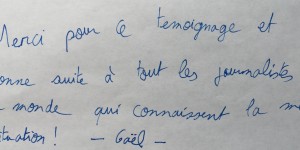 Merci pour ce temoignage et
onne suite à tout les journalistes
monde qui connaissent la m
tuation ! - Gaël -